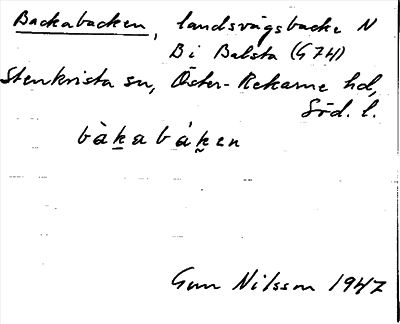 Backabacken, landsvägsbacke N
Bi Balsta (G 74)
Stenkvista sn, Öster-Rekarne hd,
Söd. l.
bàkabáken
Gun Nilsson 1947